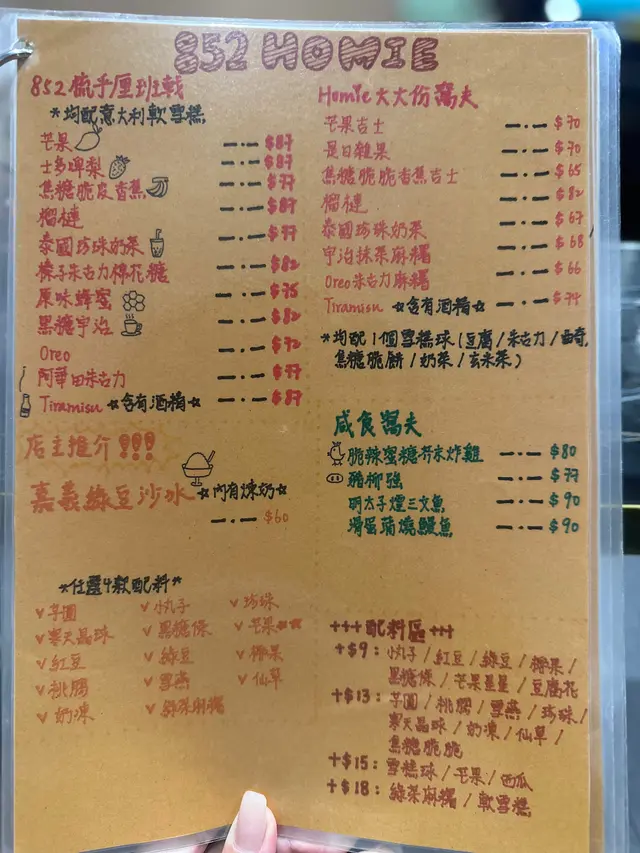 852 HOMIE
852 梳乎厘班戟
*均配意大利軟雪糕
芒果 $87
士多啤梨 $87
焦糖脆皮香蕉 $77
榴槤 $87
泰國珍珠奶茶 $77
榛子朱古力棉花糖 $82
原味蜂蜜 $75
黑糖宇治 $82
Oreo $72
阿華田朱古力 $77
Tiramisu ☆含有酒精☆ $87
店主推介!!!
嘉義綠豆沙冰 ☆內有煉奶☆
$60
*任選4款配料*
v 芋圓 v 小丸子 v 珍珠
v 寒天晶球 v 黑糖條 v 芒果
v 紅豆 v 綠豆 v 椰果
v 桃膠 v 雪燕 v 仙草
v 奶凍 v 綠茶麻糬
Homie 大大份窩夫
芒果吉士 $70
是日雜果 $70
焦糖脆脆香蕉吉士 $65
榴槤 $82
泰國珍珠奶茶 $67
宇治抹茶麻糬 $68
Oreo朱古力麻糬 $66
Tiramisu ☆含有酒精☆ $74
*均配1個雪糕球(豆腐/朱古力/曲奇,
焦糖脆餅/奶茶/玄米茶)
咸食窩夫
脆辣蜜糖芥末炸雞 $80
豬柳蛋 $77
明太子煙三文魚 $90
滑蛋蒲燒鰻魚 $90
+++配料區+++
+$9: 小丸子/紅豆/綠豆/椰果/
黑糖條/芒果星星/豆腐花
+$13: 芋圓/桃膠/雪燕/珍珠/
寒天晶球/奶凍/仙草/
焦糖脆脆
+$15: 雪糕球/芒果/西瓜
+$18: 綠茶麻糬/軟雪糕